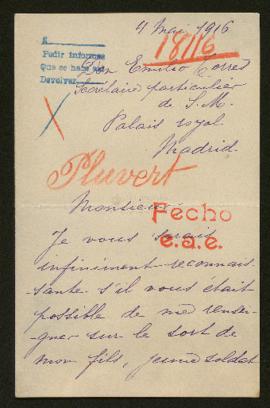 4 Mai 1916
18/16
A
Pedir informes
Que se hace
Devolver
Don Emilio Torres
Secrétaire particulier
de S. M.
Palais royal
Madrid
Pluvert
Monsieur
Fecho
e.a.e.
Je vous serais
infiniment reconnais
sante s'il vous était
possible de me rensei
gner sur le sort de
mon fils, jeune soldat